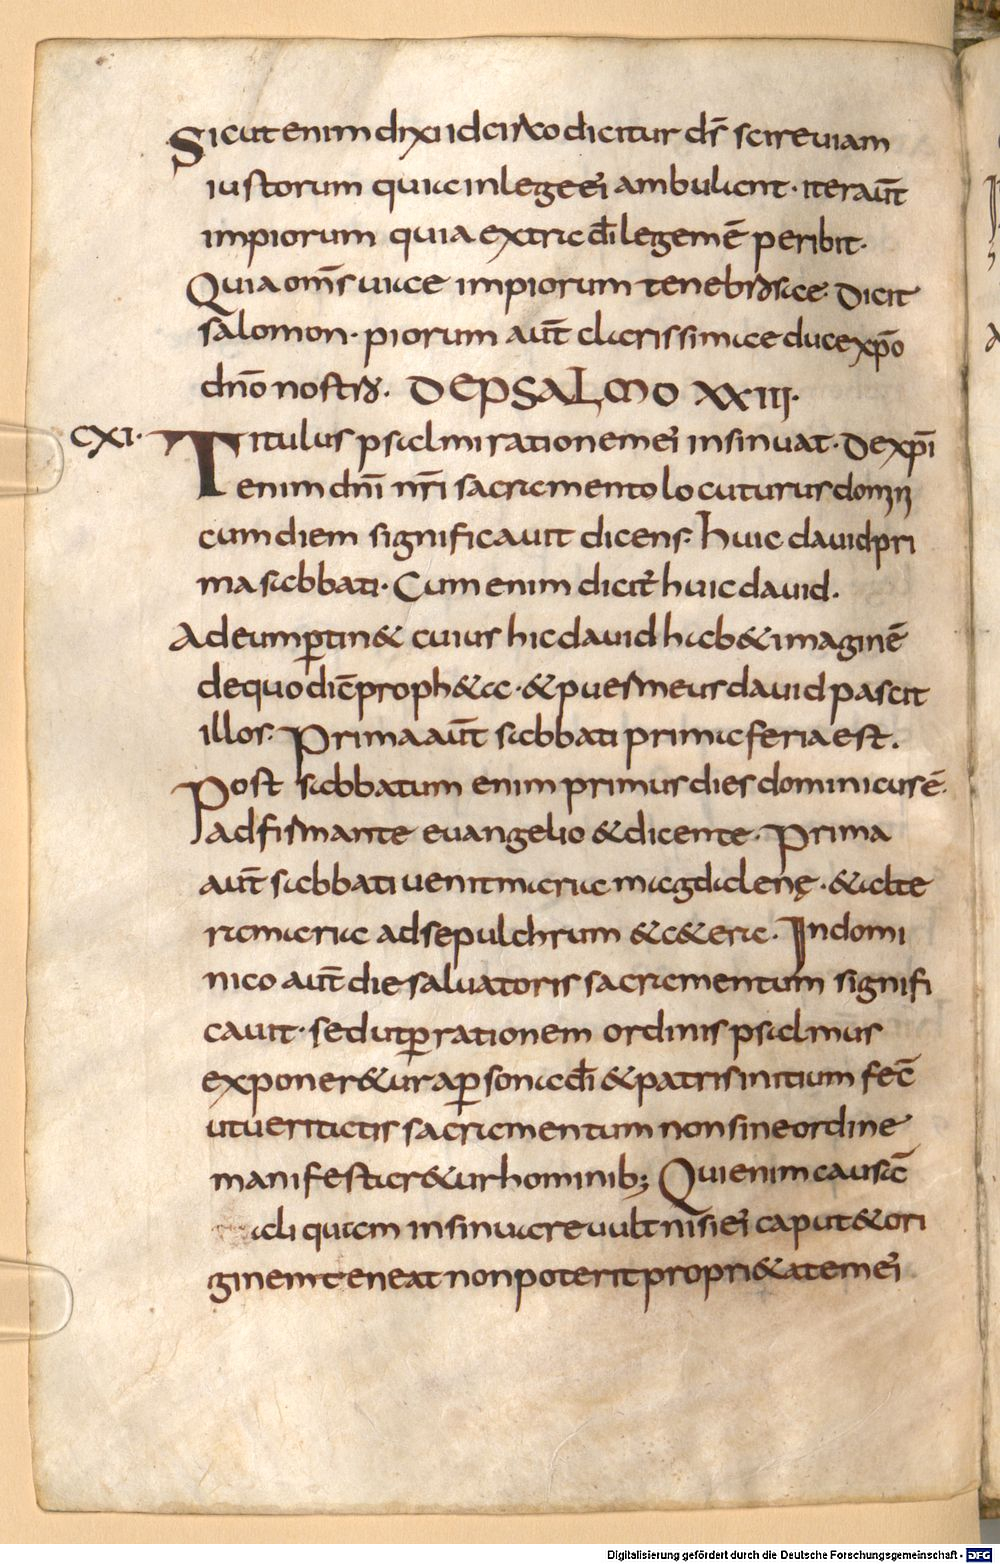 Sicut enim dixi idcirco dicitur dr̄ scire uiam
iustorum qui ic in lege ei ambulant · iter aut̄
impiorum quia extra dī legem ē peribit ·
Quia om̄s uiae impiorum tenebrosae · Dicit
salomon · piorum aut̄ clarissimae duce xp̄o
dn̄o nostro · DE PSALMO XXIII ·
CXI · Titulus psalmi rationem ei insinuat · De xp̄i
enim dn̄i nr̄i sacramento locuturus domini
cum diem significauit dicens · huic dauid pri
ma sabbati · Cum enim dicit̄ huic dauid ·
Ad eum ꝑtin& cuius hic dauid hab& imaginē
de quo dic̄ proph&a · & puer meus dauid pascit
illos · Prima aut̄ sabbati prima feria est ·
Post sabbatum enim primus dies dominicus ē ·
adfirmante euangelio & dicente · Prima
aut̄ sabbati uenit maria magdalenę · & alte
ra maria ad sepulchrum & c&era · In domi
nico aut̄ die saluatoris sacramentum signifi
cauit · sed ut ꝑ rationem ordinis psalmus
exponer&ur a ꝑsona dī & patris initium fec̄
ut ueritatis sacramentum non sine ordine
manifestar&ur hominib; Qui enim causā
ali quam insinuare uult nisi ei caput & ori
ginem teneat non poterit propri&atem ei
Digitalisierung gefördert durch die Deutsche Forschungsgemeinschaft - DFG